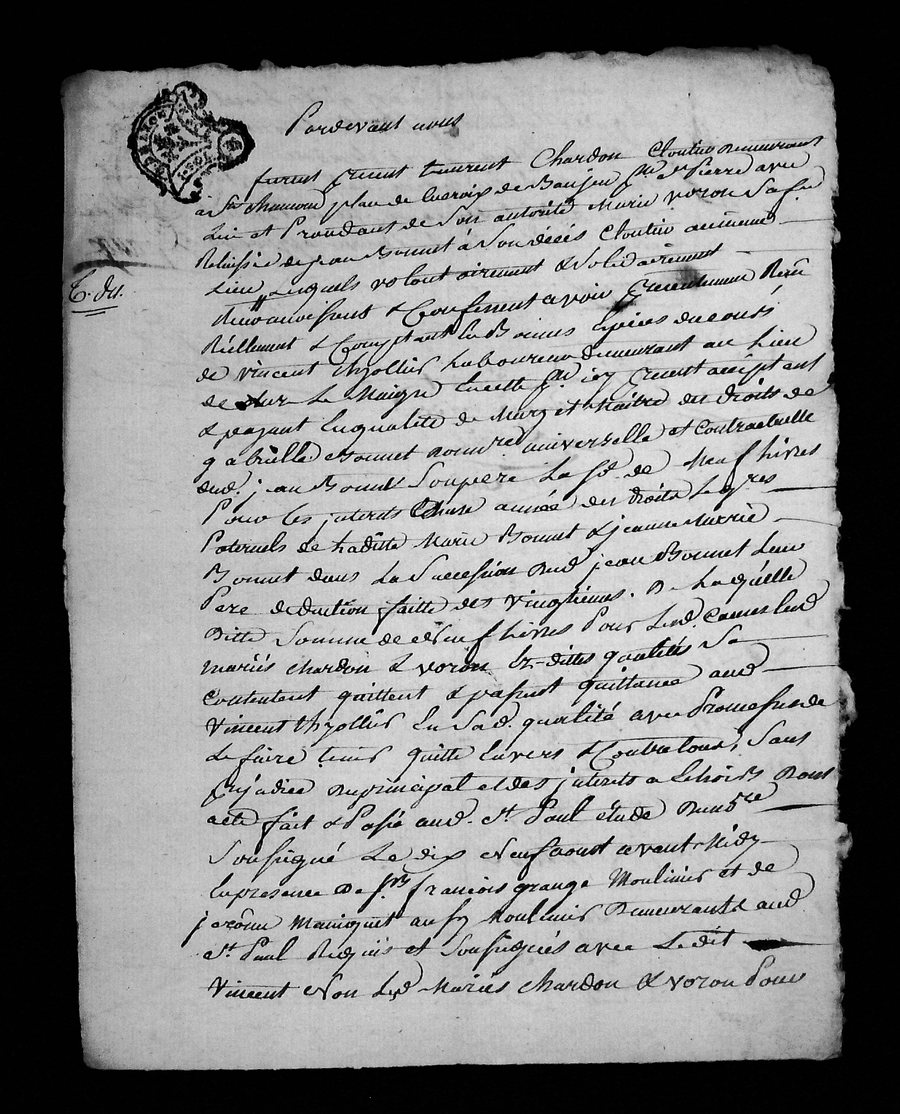 Pardevant nous
furent présent Laurent Chardon Cloutier Demeurant
à St Chamond place de Lacroix de Baujeu psse St Pierre avec
Lui et Procédant de Son autorité Marie voron Sa fe
Relaissée de jean Bonnet à Son décés Cloutier au même
Lieu, Lesquels volontairement & Solidairement
Reconnoissent & Confessent avoir présentement Reçu
Réellement & Comptant En Bonnes Espéces du cours
de vincent thyollier Laboureur demeurant au Lieu
de Sur Le Maigre psse icy présent acceptant
& payant En qualité de Mary et Maitre des droits de
gabrielle Bonnet universelle et contractuelle
dud. jean Bonnet Son pere La Se. de Neuf Livres
Pour les jnterets année des droits Leg.res
Paternels de Laditte Marie Bonnet & jeanne Marrie
Bonnet dans La Succession dud jean Bonnet Leur
Pere deduction faitte des vingtiemes. De Laquelle
Ditte Somme de Neuf Livres Pour Lesd causes Lesd
mariés chardon & voron Ez-dittes qualités Se
Contentent quittent & passent quittance aud
vincent thyollier En Sad. qualité avec Promesses de
Le faire tenir quitte Envers & Contre tous, Sans
préjudice du principal et des jnterets a Echoir Dont
acte fait & Passé aud. St Paul étude du nore
Soussigné Le dix Neuf aout avant Midy
En presence De francois grange Moulinier et de
jerôme aussy Moulinier Demeurants aud
St Paul Requis et Soussignés avec Ledit
Vincent Non Lesd Mariés chardon & voron Pour